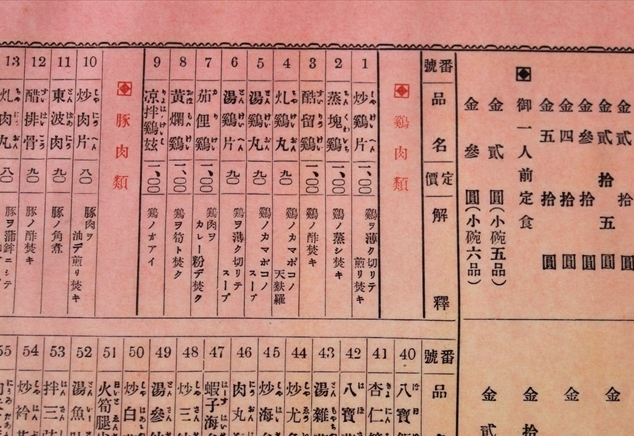 金貳拾圓
金貳拾五圓
金參拾圓
金四拾圓
金五拾圓
御一人前定食
金貳圓(小碗五品)
金參圓(小碗六品)
番號 品名 定價 解釋
鷄肉類
1 炒鷄片 一、〇〇 鷄ヲ薄ク切リテ煎リ焚キ
2 蒸塊鷄 一、〇〇 鷄ノ蒸シ焚キ
3 醋留鷄 一、〇〇 鷄ノ酢焚キ
4 鷄丸 九〇 鷄ノカマボコノ天麩羅
5 湯鷄丸 九〇 鷄ノカマボコノスープ
6 湯鷄片 九〇 鷄ヲ薄ク切リテスープ
7 茄俚鷄 一、〇〇 鷄肉ヲカレー粉デ焚ク
8 黃燜鷄 一、〇〇 鷄ヲ筍ト焚ク
9 涼拌鷄 一、〇〇 鷄ノオアイ
豚肉類
10 炒肉片 八〇 豚肉ヲ油デ煎リ焚キ
11 東波肉 九〇 豚ノ角煮
12 醋排骨 九〇 豚ノ酢焚キ
13 肉丸 八〇 豚ヲ蒲鉾ニシテ
番號 品
40 八寶
41 杏仁
42 八寶
43 湯雜
44 炒
45 炒海
46 肉丸
47 蝦子海
48 炒三
49 湯參
50 炒白
51 火筍腿
52 湯魚
53 拌三
54 炒
55
金
金
金拾
金貳